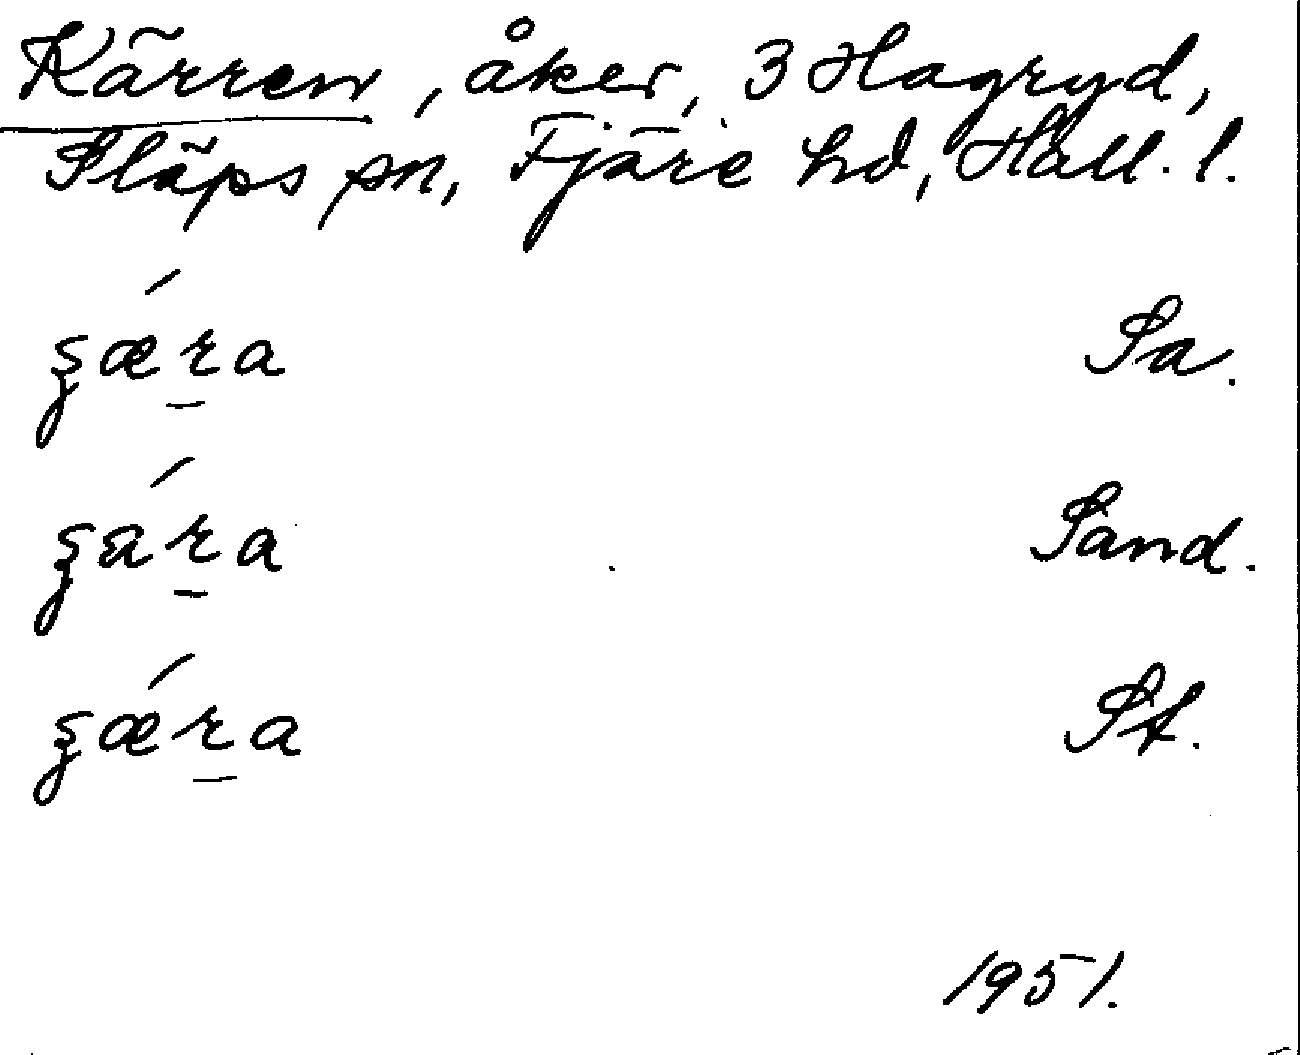 Kärren, åker, 3 Hagryd,
Släps sn, Fjäre hd, Hall. l.
ʂǽr̲a Sa.
ʂár̲a Sand.
ʂǽr̲a St.
1951.